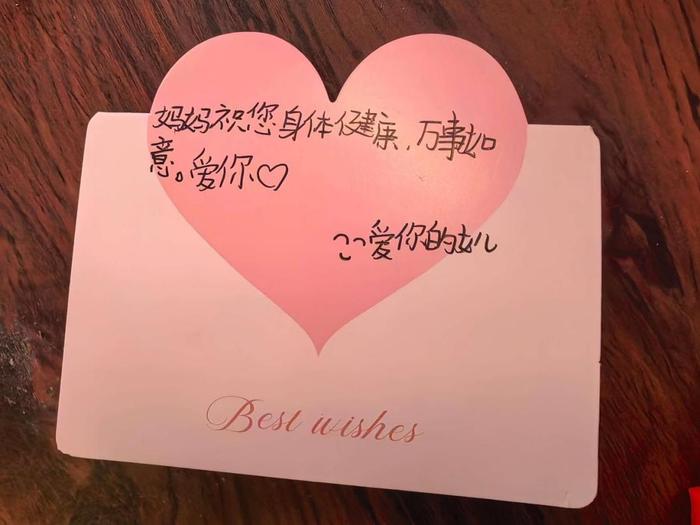 妈妈祝您身体健康,万事如
意。爱你♡
爱你的女儿
Best wishes